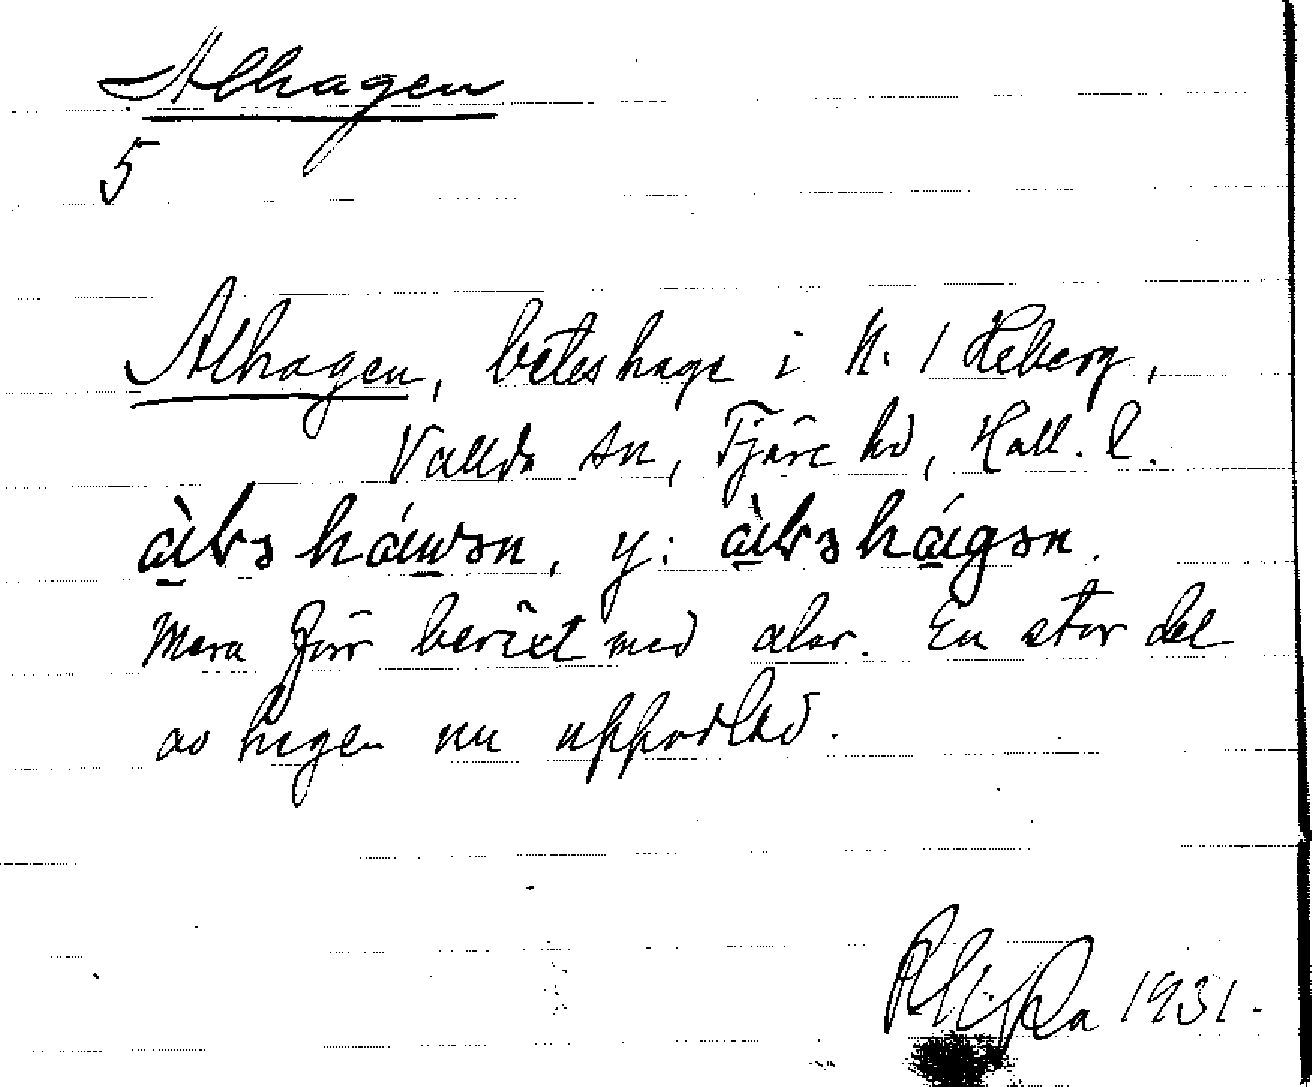 Alhagen
5
Alhagen, beteshage i N. 1 Heberg,
Vallda sn, Fjäre hd, Hall. l.
y:
Mera förr beväxt med alar. En stor del
av hagen nu uppodlad.
1931.